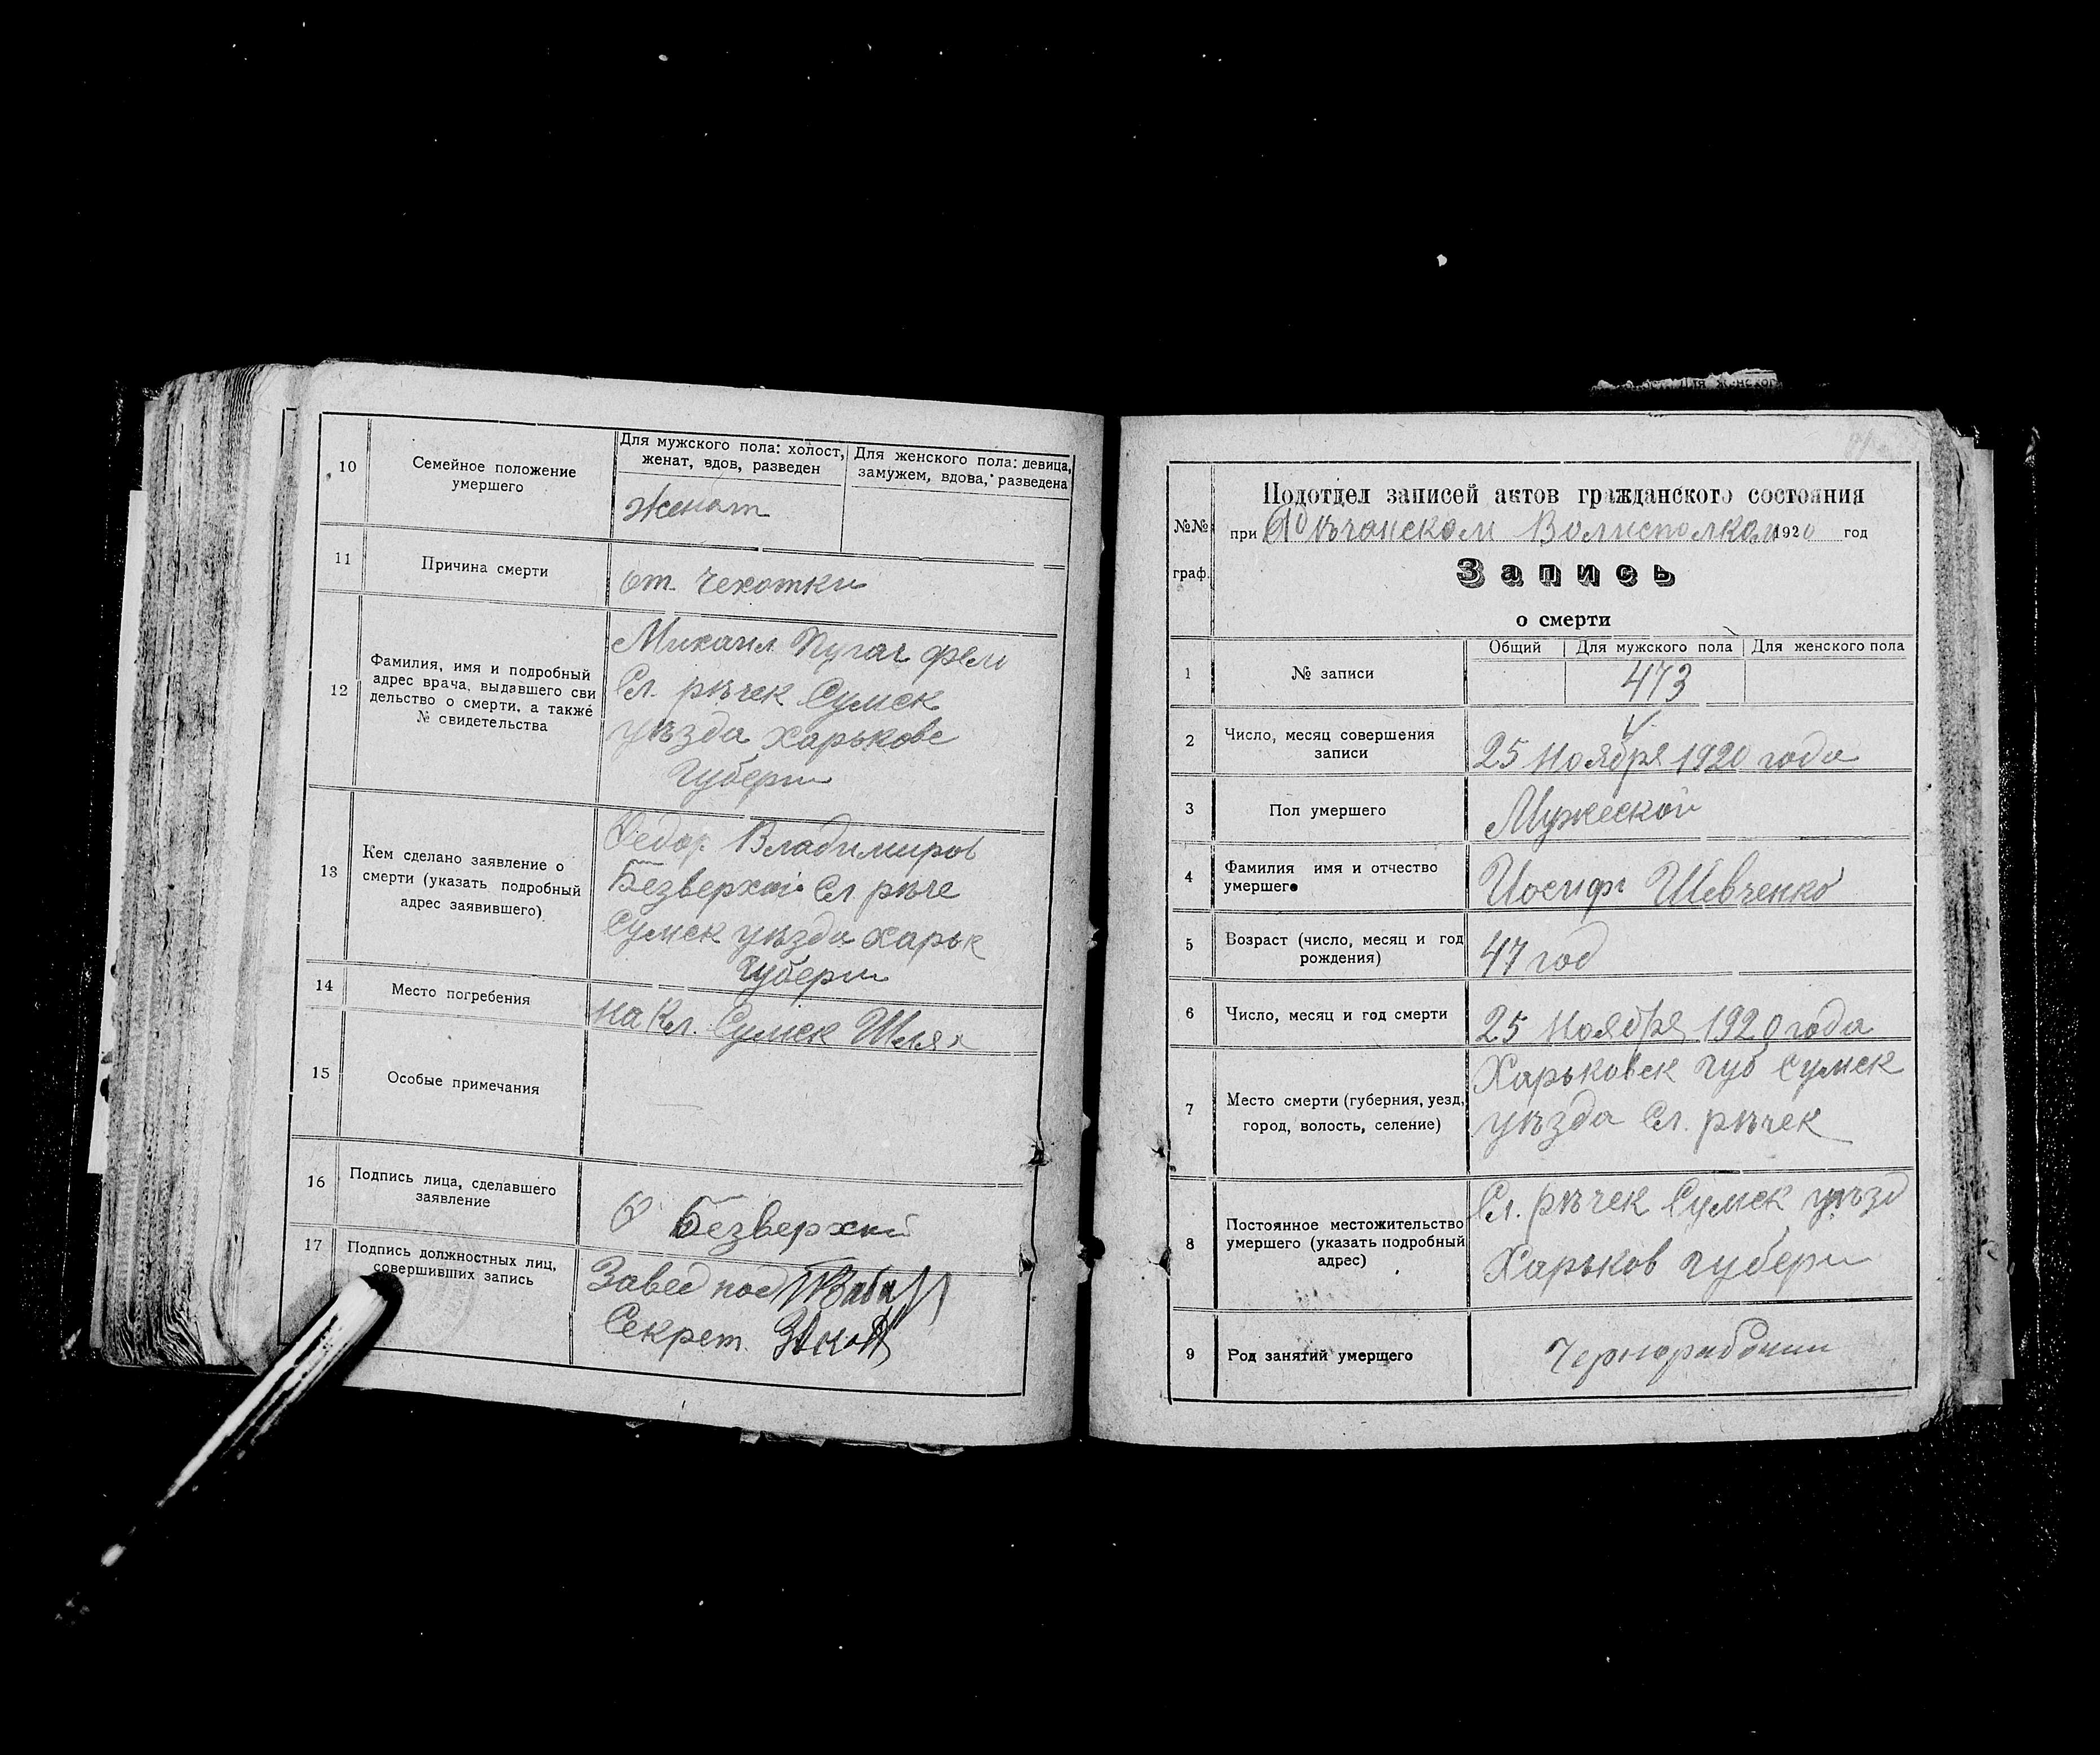 10
Семейное положение
умершего
Для мужского пола: холост,
женат, вдов, разведен
Для женского пола: девица,
замужем, вдова, разведена
женат
11
Причина смерти
от чехотки
12
Фамилия, имя и подробный
адрес врача, выдавшего сви
дельство о смерти, а также
№ свидетельства
Михаил Пугач фель
Сл. рѣчек Сумск
уѣзда Харькове
Губерни
13
Кем сделано заявление о
смерти (указать подробный
адрес заявившего)
Федор Владимиров
Безверхий Сл рѣче
Сумск уѣзда Харьк
Губерни
14
Место погребения
На Кл. Сумск Шлях
15
Особые примечания
16
Подпись лица, сделавшего
заявление
Безверхий
17
Подпись должностных лиц,
совершивших запись
Завед под
Секрет.
№№
граф.
Подотдел записей актов гражданского состояния
при Рѣчанском Волисполком 1920 год
Запись
о смерти
1
№ записи
Общий
Для мужского пола
Для женского пола
473
2
Число, месяц совершения
записи
25 Ноября 1920 года
3
Пол умершего
Мужеской
4
Фамилия имя и отчество
умершего
Иосиф Шевченко
5
Возраст (число, месяц и год
рождения)
47 год
6
Число, месяц и год смерти
25 Ноября 1920 года
7
Место смерти (губерния, уезд,
город, волость, селение)
Харьковск губ Сумск
уѣзда Сл. рѣчек
8
Постоянное местожительство
умершего (указать подробный
адрес)
Сл. рѣчек Сумск уѣзд
Харьков губерн
9
Род занятий умершего
Чернорабочии